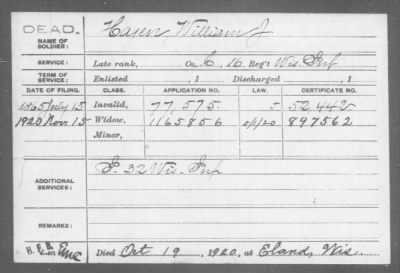 DEAD.
NAME OF SOLDIER: Hasen, William J.
SERVICE: Late rank, Co. C, 16 Reg't Wis. Inf
TERM OF SERVICE: Enlisted , 1 Discharged , 1
DATE OF FILING. CLASS. APPLICATION NO. LAW. CERTIFICATE NO.
1865 July 15 Invalid, 77,575 52,442
1920 Nov. 15 Widow, 1165856 5/1/20 897562
Minor,
ADDITIONAL SERVICES: 32 Wis. Inf
REMARKS:
Died Oct 19, 1920, at Eland, Wis.